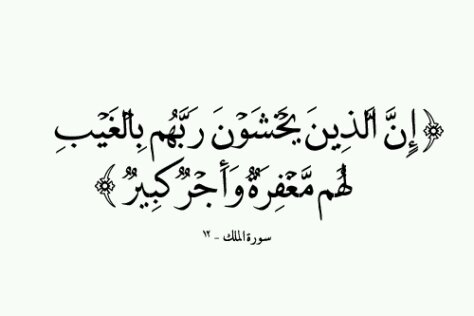 ﴿إِنَّ ٱلَّذِينَ يَخْشَوْنَ رَبَّهُم بِٱلْغَيْبِ
لَهُم مَّغْفِرَةٌ وَأَجْرٌ كَبِيرٌ﴾
سورة الملك - ١٢